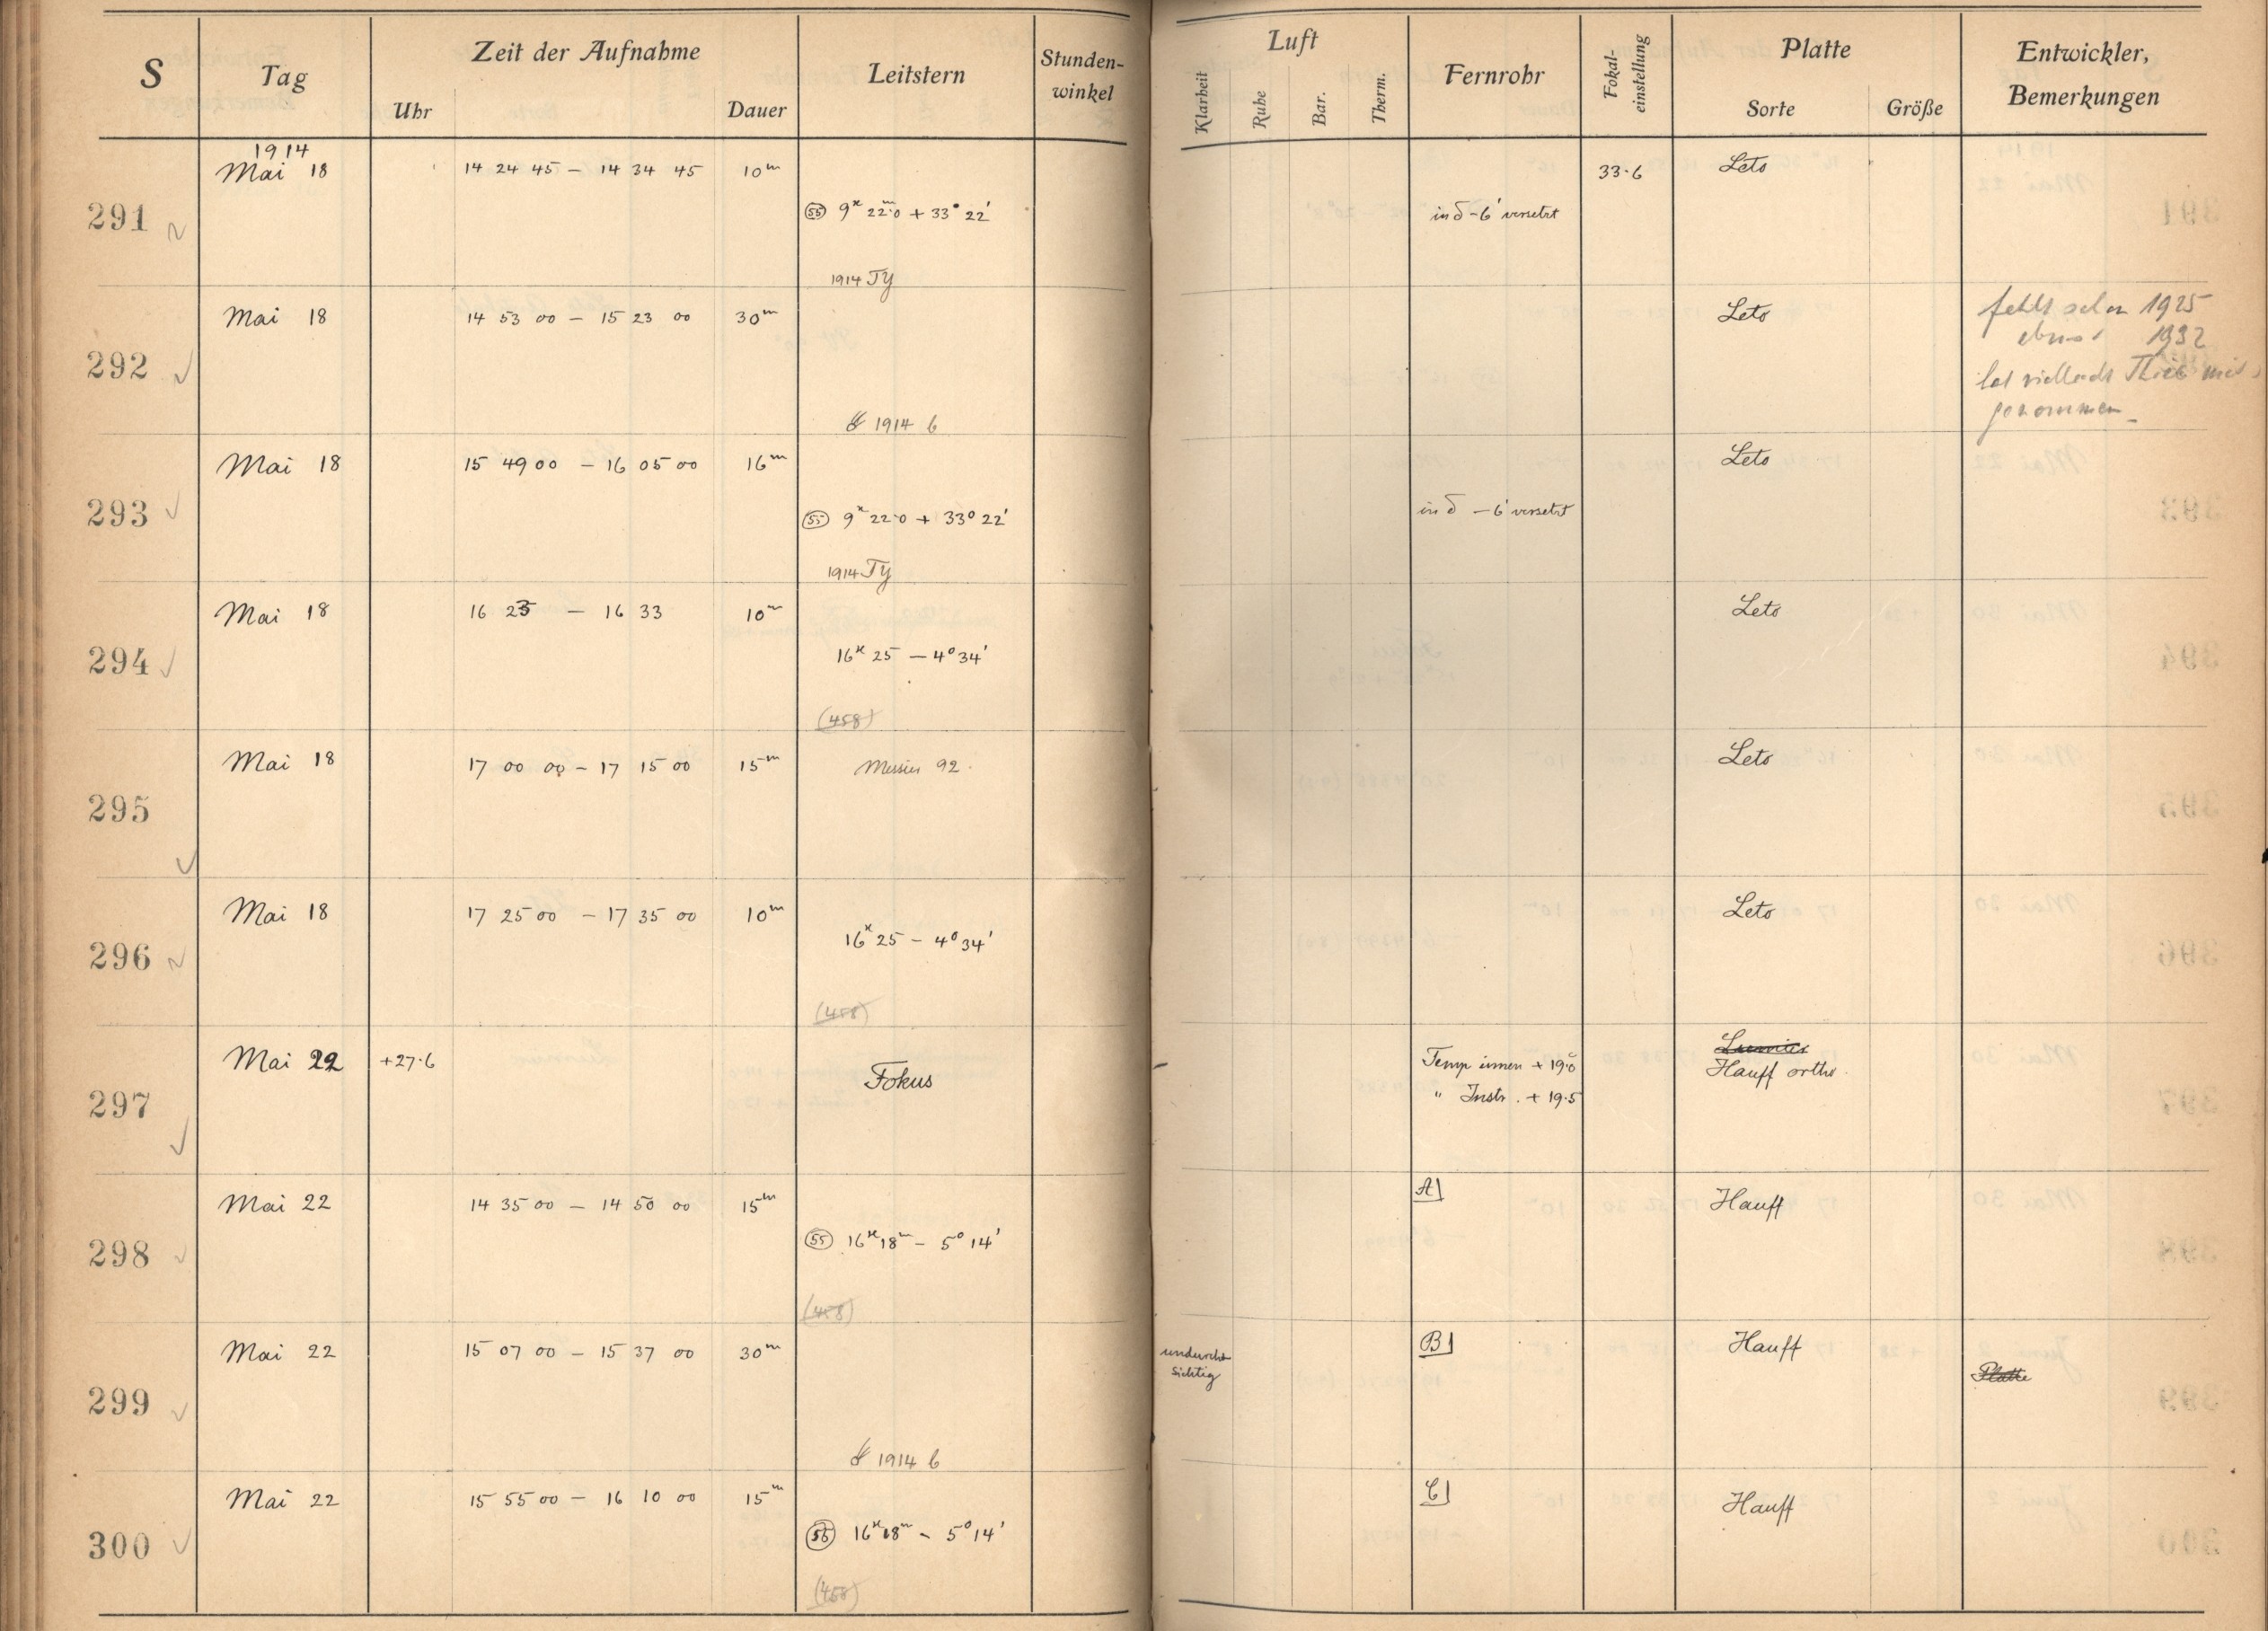 S Tag Zeit der Aufnahme Leitstern Stunden-winkel Luft Fernrohr Fokal-einstellung Platte Entwickler, Bemerkungen
Uhr Dauer Klarheit Ruhe Bar. Therm. Sorte Größe
1914
291 Mai 18 14 24 45 – 14 34 45 10m 33.6 Leto
(55) 9h 22m.0 + 33° 22' in δ –6' versetzt
1914 TY
292 Mai 18 14 53 00 – 15 23 00 30m Leto fehlt schon 1925
1932
genommen
1914 b
293 Mai 18 15 49 00 – 16 05 00 16m Leto
(55) 9h 22.0 + 33° 22' in δ –6' versetzt
1914 TY
294 Mai 18 16 23 – 16 33 10m Leto
16h 25 – 4° 34'
(458)
295 Mai 18 17 00 00 – 17 15 00 15m Messier 92. Leto
296 Mai 18 17 25 00 – 17 35 00 10m Leto
16h 25 – 4° 34'
(458)
297 Mai 22 +27.6 Fokus Temp innen + 19.0 Hauff ortho.
" Instr. + 19.5
298 Mai 22 14 35 00 – 14 50 00 15m A Hauff
(55) 16h 18m – 5° 14'
(458)
299 Mai 22 15 07 00 – 15 37 00 30m undurch-sichtig B Hauff Platte
1914 b
300 Mai 22 15 55 00 – 16 10 00 15m C Hauff
(55) 16h 18m – 5° 14'
(458)